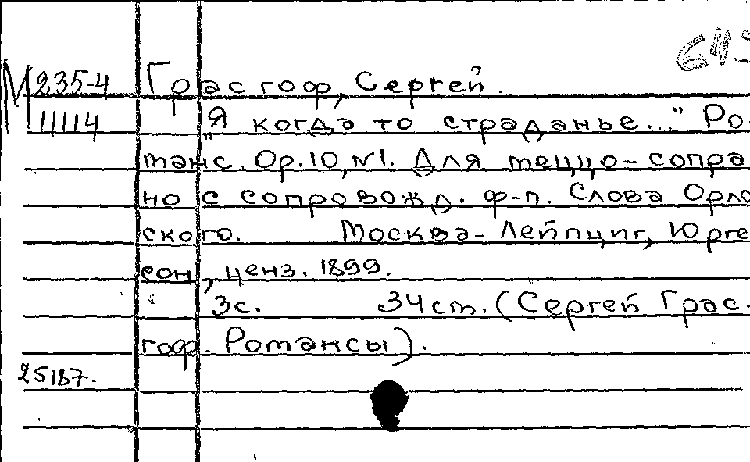 М 235-4 Грасгоф, Сергей.
11114 "Я когда то страданье..." Ро-
манс. Op.10, №1. Для меццо-сопра
но с сопровожд. ф-п. Слова Орло
ского. Москва-Лейпциг, Юрге
сон, ценз. 1899.
3с. 34см. (Сергей Грас-
гоф. Романсы).
25187.